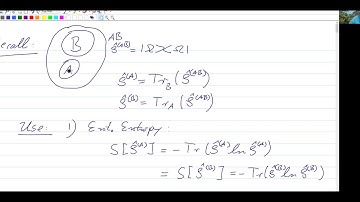 ecall:
B
A
AB
ρ̂^(AB) = |Ω⟩⟨Ω|
ρ̂^(A) = Tr_B (ρ̂^(AB))
ρ̂^(B) = Tr_A (ρ̂^(AB))
Use: 1) Ent. Entropy:
S[ρ̂^(A)] = -Tr(ρ̂^(A) ln ρ̂^(A))
= S[ρ̂^(B)] = -Tr(ρ̂^(B) ln ρ̂^(B))